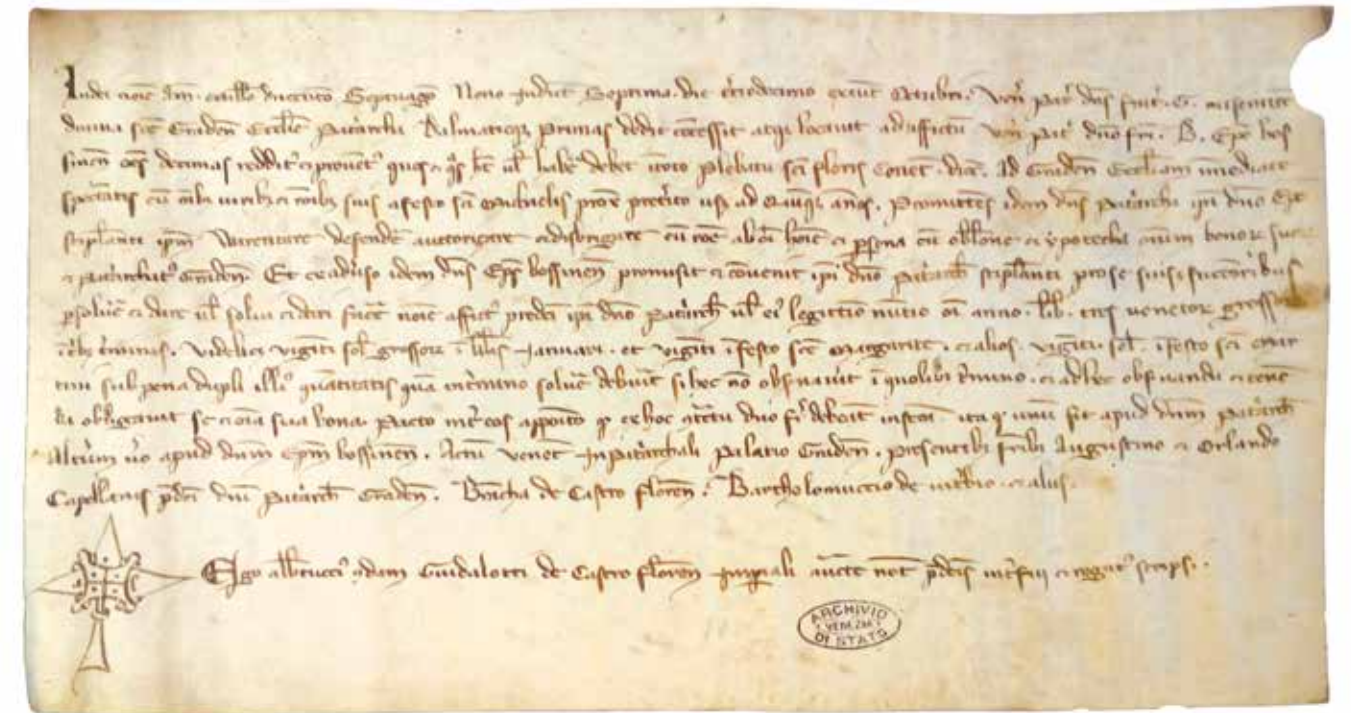 In dei noie am. millo ducento Septuagō Nono Indict Septima. die tredecimo exeunt Octubr. Ven pat dns frat. G. miseratiōe
diuina sce Graden Ecclie Patiarcha Dalmatieq Primas dedit concessit atq locauit ad affictū ven pat dno fri. B. Epo bos
sinen oēs decimas reddit et prouent quos et qs ht ul habe debet in toto Plebatu sci floris Conet. dioc. Ad Graden Eccliam inmediate
spectātis cū oibz iuribz et rōibz suis a festo sci Michaelis prox pretito usq ad Quinqz anos. Promittēs idem dns Patiarcha ipi dno Epo
stiplanti ipm Warentare defende auctorigare et disbrigare cū rōe ab oi hoie et psona cū oblione et ypotecha omium bonor suor
et Patiarchat Graden. Et ex aduso idem dns Eps bossinen promisit et conuenit ipi dno Patiarch stiplanti pro se suisq successoribus
psolue et dare ul solui et dari face noie affict predci ipi dno Patiarch ul ei legittimo nuntio oi anno. lib. tres venetor grossor
ī tribz tminis. Videlicz viginti sol grossor ī klis Januari. et viginti ī festo sce Margarite. et alios viginti sol ī festo sci Mar
tini sub pena dupli illi quantitatis quā in tmino solue debuit si hec nō obsuauit ī quolibz tmino. et ad hec obsuanda et tenē
da obligauit se et oia sua bona. Pacto int eos apposito q ex hoc gtctu duo fi debeāt instra. ita q unū sit apud dnm Patiarch
Altum uo apud dnm Epm bossinen. Actū Venet in Patiarchali Palatio Graden. presentibz fribz Augustino et Orlando
Capellanis pdci dni Patiarch Graden. de Castro floren. Bartholomuccio de et aliis.
Ego albtucci qdam Guidalotti de Castro floren Imperiali aucte not pdcis intfui et rogat scripsi.
ARCHIVIO
VENEZIA
DI STATO